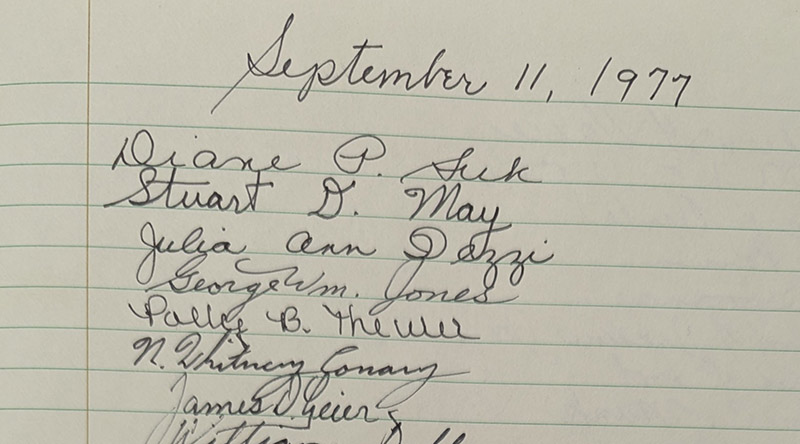 September 11, 1977
Diane P. Suk
Stuart D. May
Julia Ann Dazzi
George Wm. Jones
B.
N. Whitney Conary
James D. Geier
William